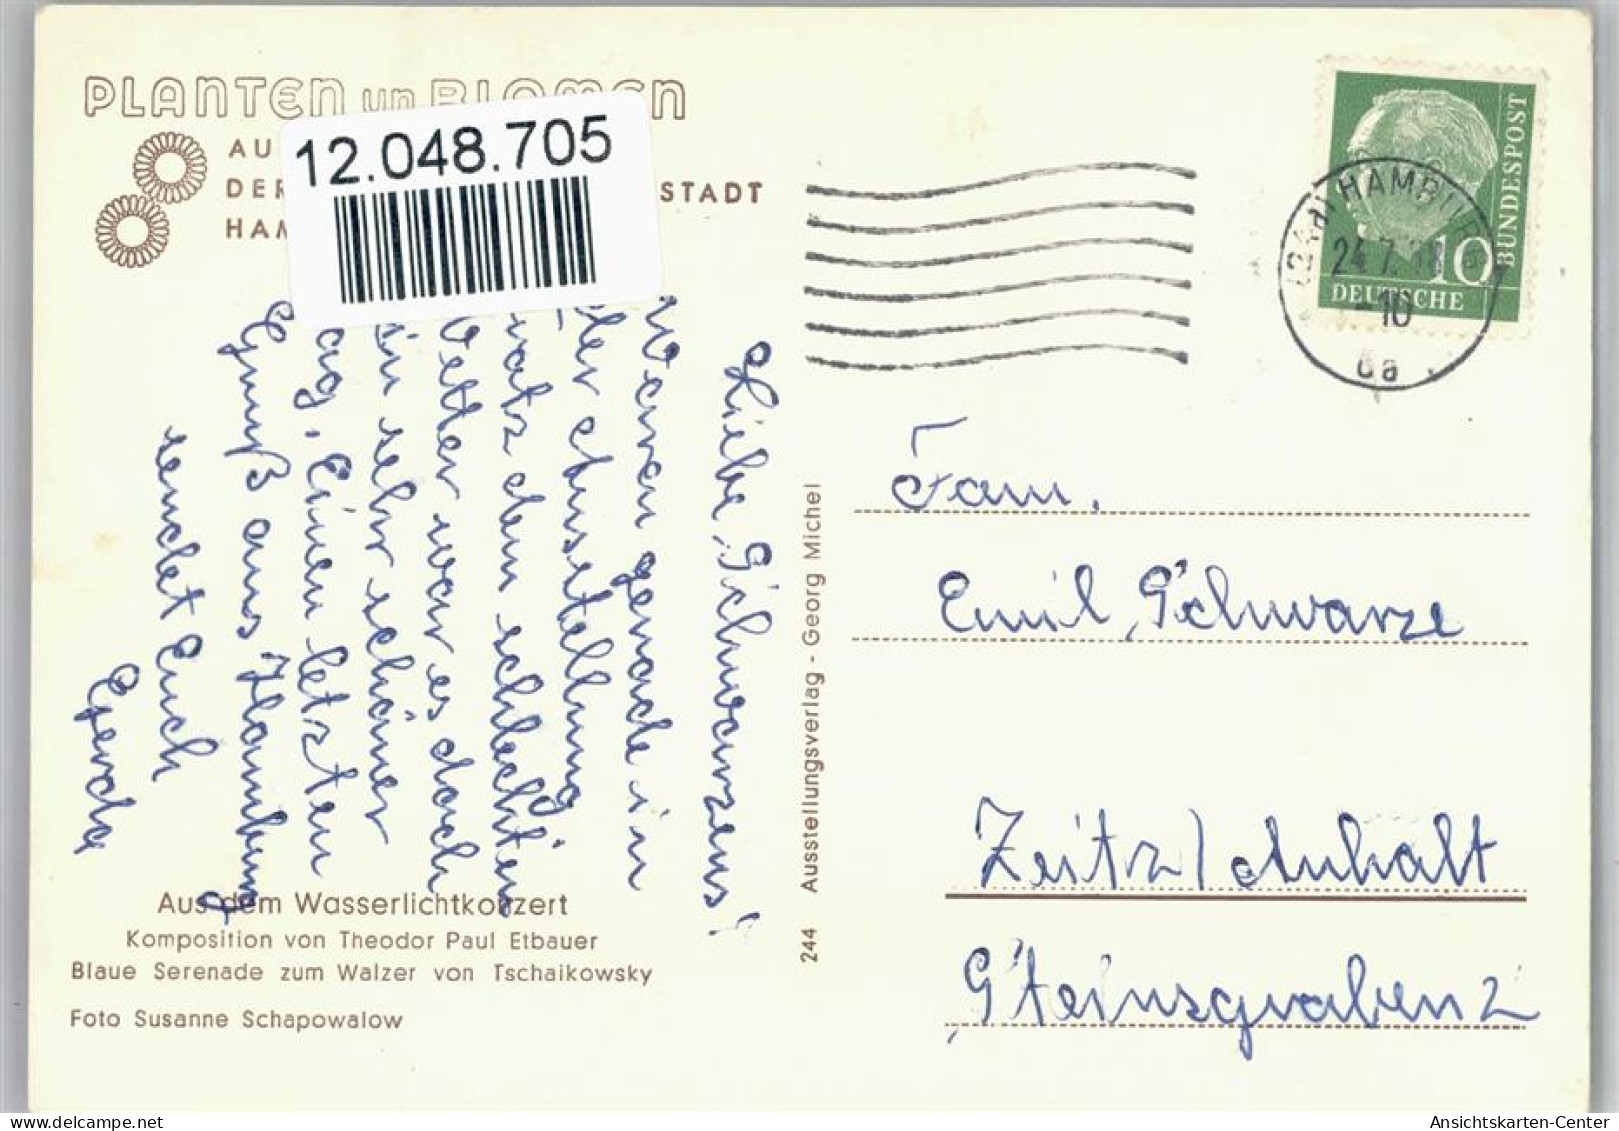 PLANTEN un BLOMEN
AU
DER STADT
HAM
12.048.705
Liebe Schwarzens!
Waren gerade in
der Ausstellung
trotz dem schlechten
Wetter war es doch
ein sehr schöner
Tag. Einen letzten
Gruß aus Hamburg
sendet Euch
Gerda
Aus dem Wasserlichtkonzert
Komposition von Theodor Paul Etbauer
Blaue Serenade zum Walzer von Tschaikowsky
Foto Susanne Schapowalow
244 Ausstellungsverlag - Georg Michel
(24a) HAMBURG
24.7.
-10
BUNDESPOST
10
DEUTSCHE
Fam.
Emil Schwarze
Zeitz / Anhalt
Steinsgraben 2
Ansichtskarten-Center
delcampe.net